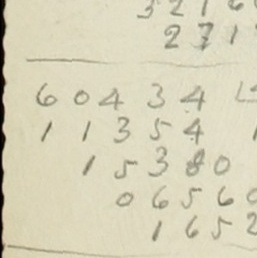 3 2 1 6
2 7 1
6 0 4 3 4
1 1 3 5 4
1 5 3 8 0
0 6 5 6 0
1 6 5 2